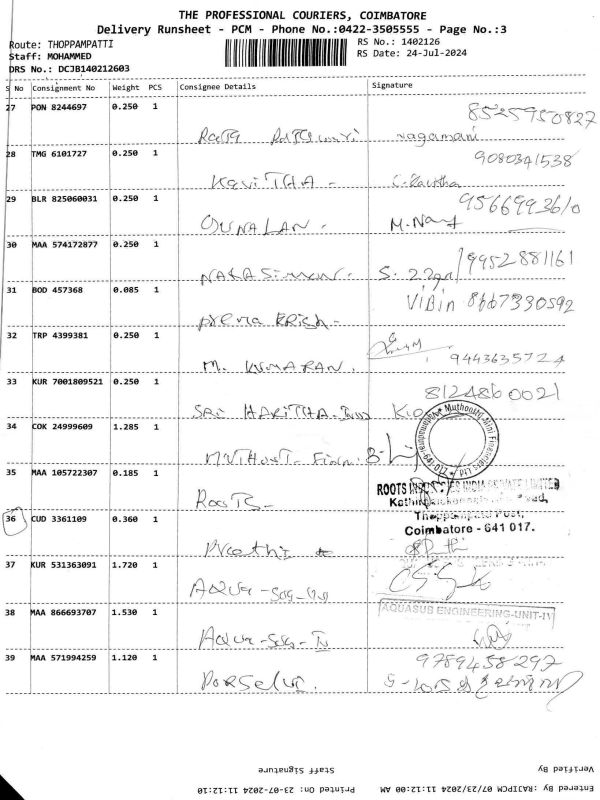 THE PROFESSIONAL COURIERS, COIMBATORE
Delivery Runsheet - PCM - Phone No.:0422-3505555 - Page No.:3
Route: THOPPAMPATTI RS No.: 1402126
Staff: MOHAMMED RS Date: 24-Jul-2024
DRS No.: DCJB140212603
S No Consignment No Weight PCS Consignee Details Signature
27 PON 8244697 0.250 1 8525950827
Roots nagamani
28 TMG 6101727 0.250 1 9080341538
KaviTHA - C. Kavitha
29 BLR 825060031 0.250 1 9566993610
GUNALAN - M.
30 MAA 574172877 0.250 1 9952881161
S.
31 BOD 457368 0.085 1 ViBin 8667330592
prema KRish -
32 TRP 4399381 0.250 1
M. KUMARAN. 9443635724
33 KUR 7001809521 0.250 1 8124860021
SRI HARITHA
34 COK 24999609 1.285 1 Muthoottu Mini Financiers Ltd
MUTHOOT - Finn
35 MAA 105722307 0.185 1 ROOTS INDUSTRIES INDIA PRIVATE LIMITED
Roots -
Thoppampatti Post,
36 CUD 3361109 0.360 1 Coimbatore - 641 017.
Preethi
37 KUR 531363091 1.720 1
AQUA - SUB
38 MAA 866693707 1.530 1 AQUASUB ENGINEERING-UNIT-IV
AQUA - SUB - IV
39 MAA 571994259 1.120 1 9789458297
PORSelvi.
Staff Signature Verified By
Printed On: 23-07-2024 11:12:10 Entered By: RAJIPCM 07/23/2024 11:12:00 AM